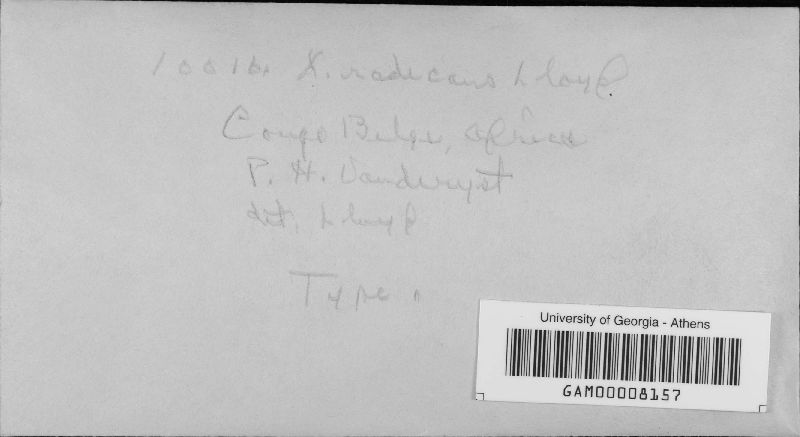 10010. X. radicans Lloyd.
Congo Belge, Africa
P. H. Vanderyst
det. Lloyd
Type.
University of Georgia - Athens
GAM00008157